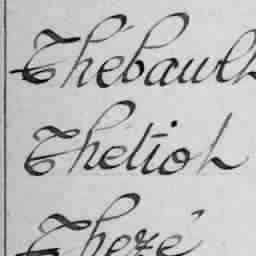 Thébault
Thétiot
Thezé